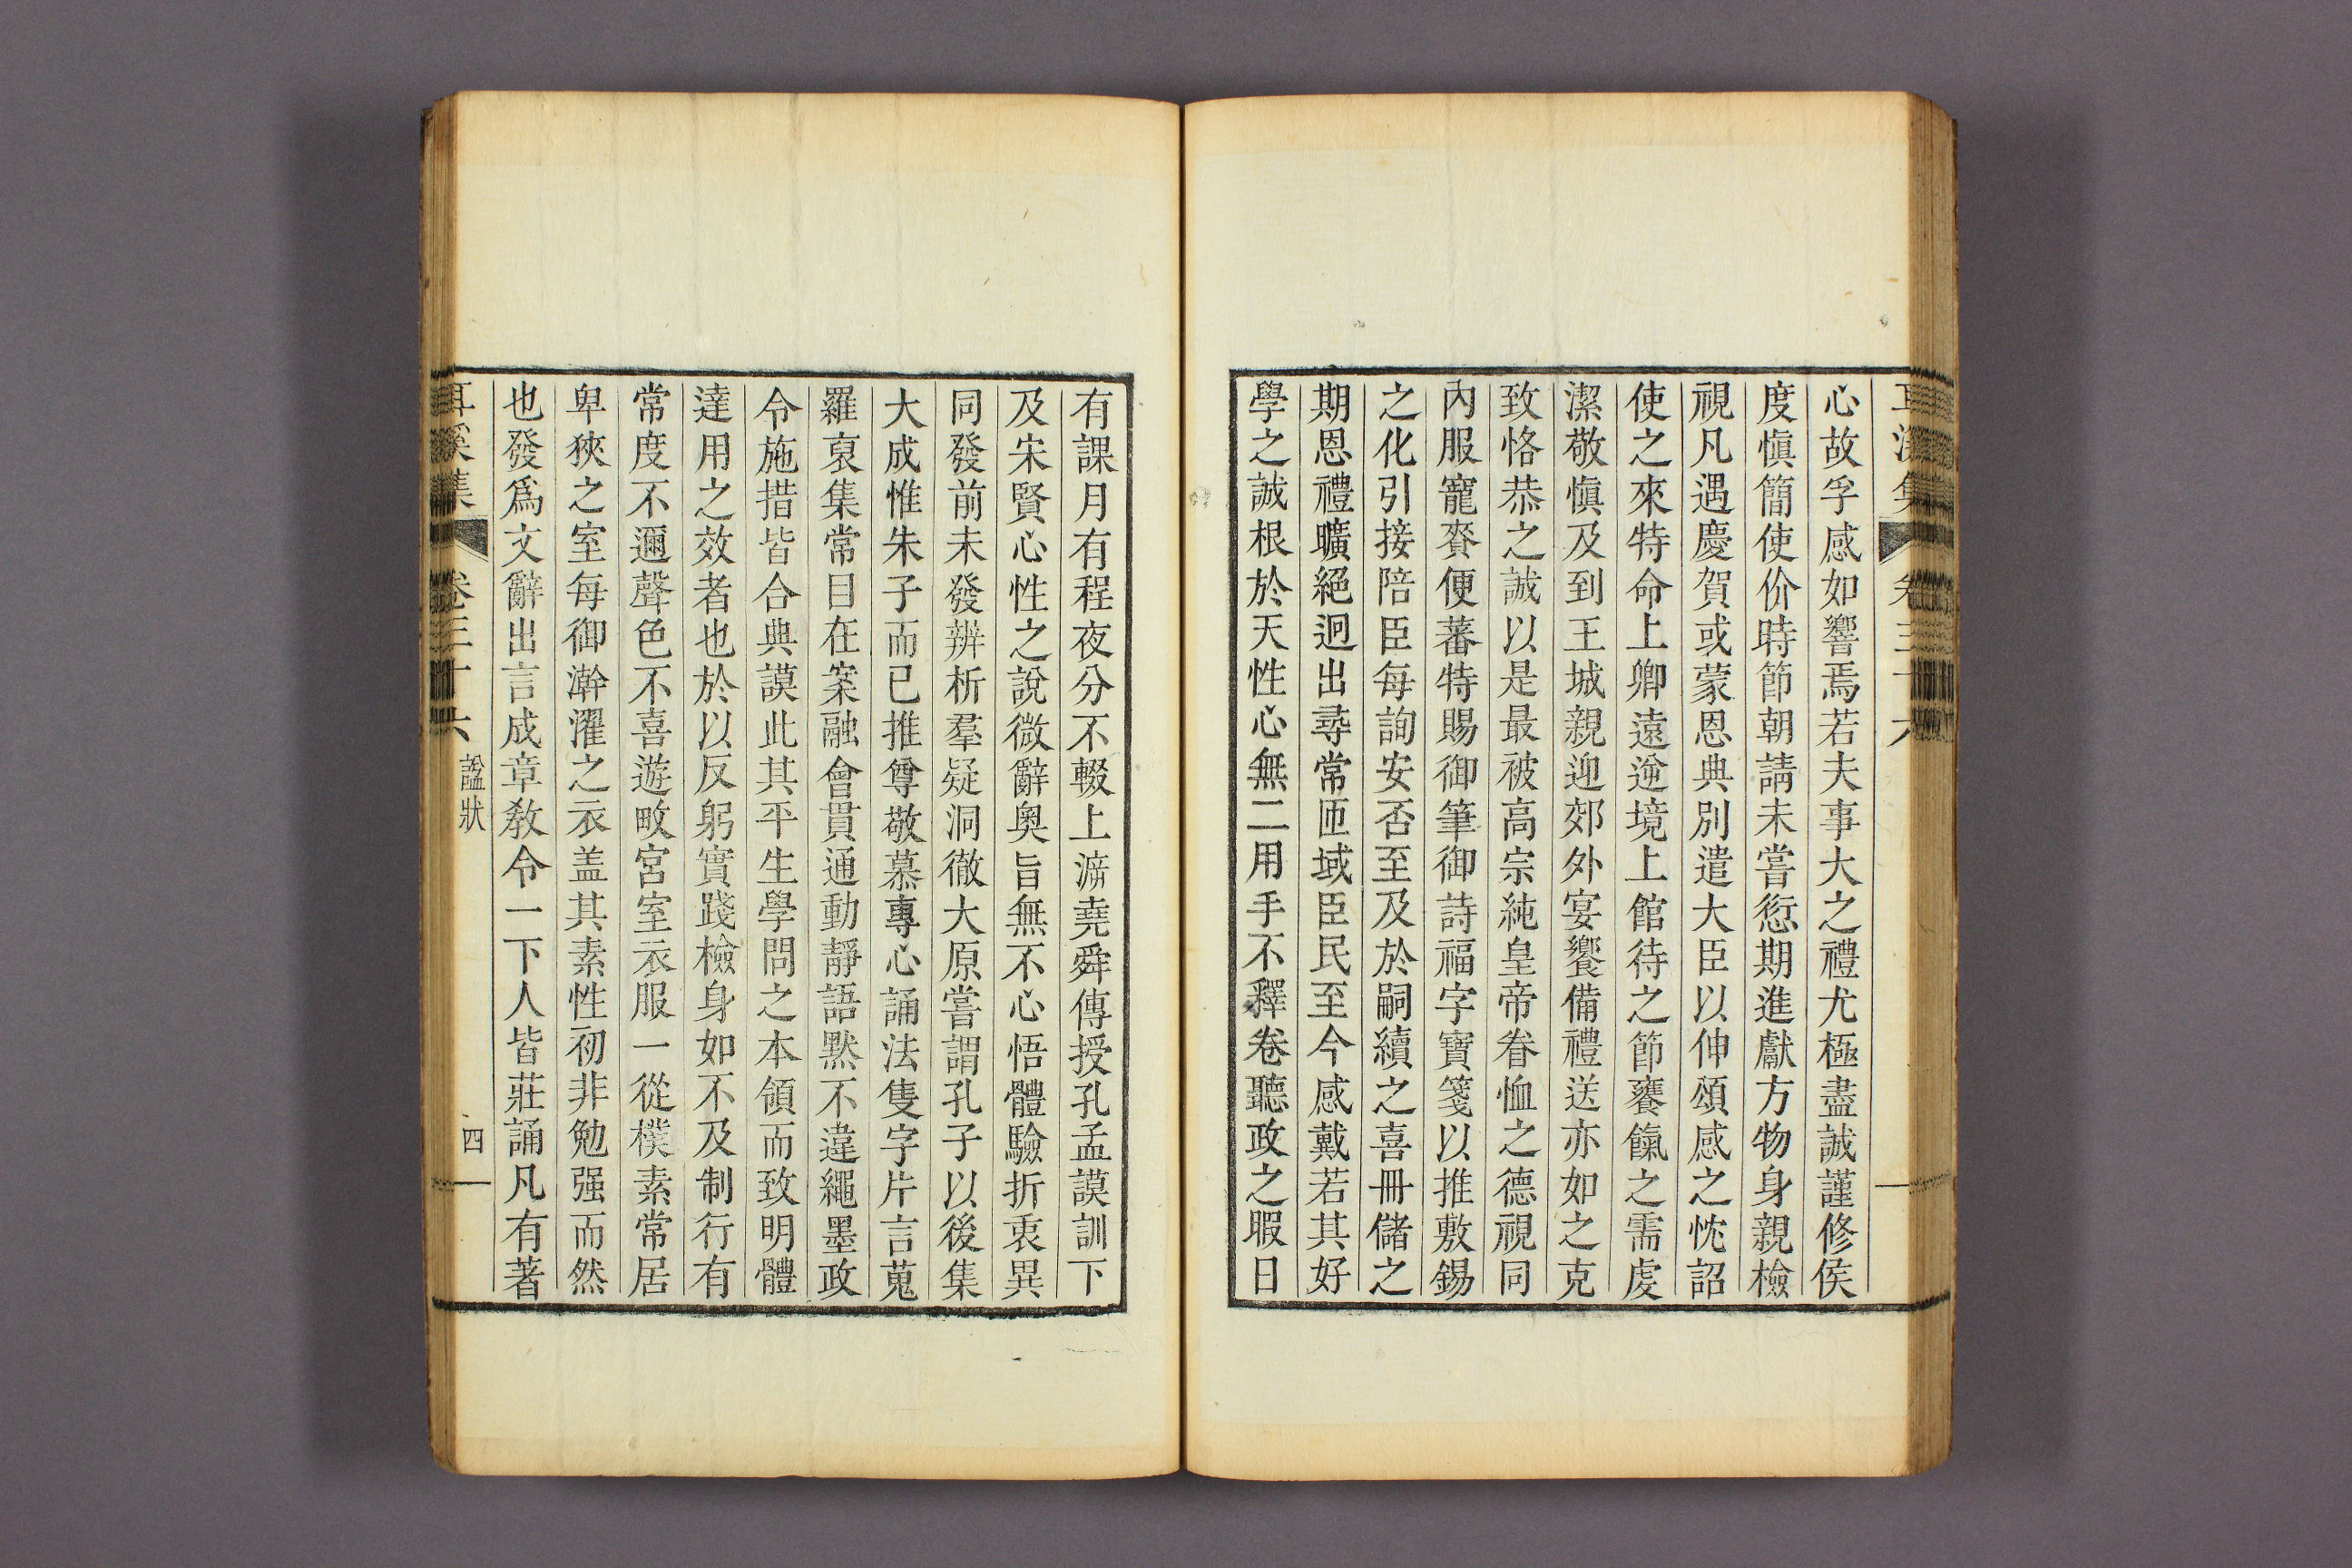 心故孚感如響焉若夫事大之禮尤極盡誠謹修侯
度愼簡使价時節朝請未嘗愆期進獻方物身親檢
視凡遇慶賀或蒙恩典別遣大臣以伸頌感之忱詔
使之來特命上卿遠迆境上館待之節饔餼之需虔
潔敬愼及到王城親迎郊外宴饗備禮送亦如之克
致恪恭之誠以是最被高宗純皇帝眷恤之德視同
內服寵賚便蕃特賜御筆御詩福字寶箋以推敷錫
之化引接陪臣每詢安否至及於嗣續之喜冊儲之
期恩禮曠絕迥出尋常匝域臣民至今感戴若其好
學之誠根於天性心無二用手不釋卷聽政之暇日
有課月有程夜分不輟上泝堯舜傳授孔孟謨訓下
及宋賢心性之說微辭奧旨無不心悟體驗折衷異
同發前未發辨析羣疑洞徹大原嘗謂孔子以後集
大成惟朱子而已推尊敬慕專心誦法隻字片言蒐
羅裒集常目在案融會貫通動靜語默不違繩墨政
令施措皆合典謨此其平生學問之本領而致明體
達用之效者也於以反躬實踐檢身如不及制行有
常度不邇聲色不喜遊畋宮室衣服一從樸素常居
卑狹之室每御澣濯之衣盖其素性初非勉强而然
也發爲文辭出言成章敎令一下人皆莊誦凡有著
耳溪集 卷三十六 諡狀 四